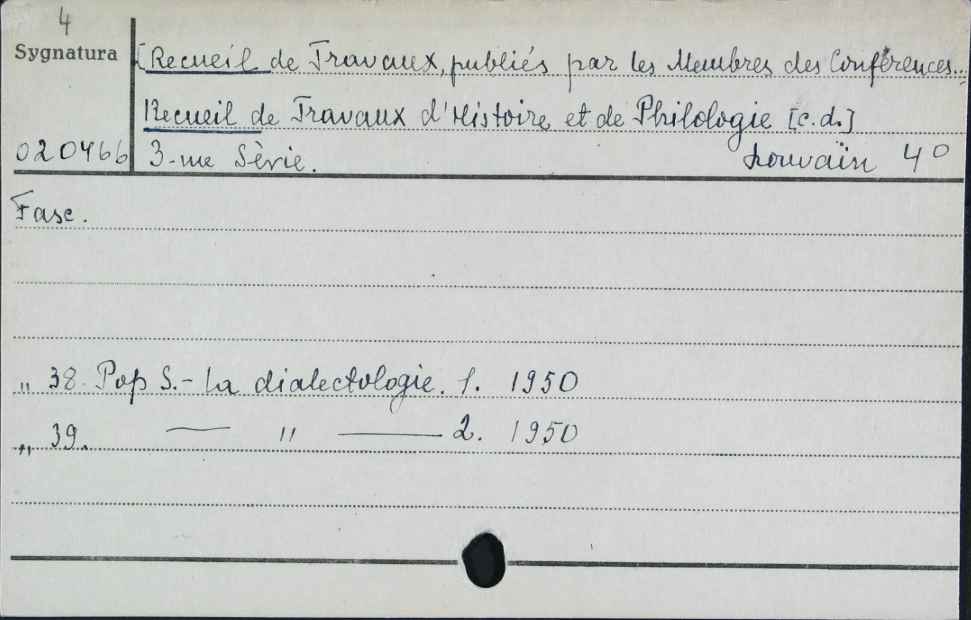 4
Sygnatura
[Recueil de Travaux, publiés par les Membres des Conférences...
Recueil de Travaux d'Histoire et de Philologie [c.d.]
020466 3-me Sèrie. Louvain 4°
Fasc.
„ 38. Pop S. - La dialectologie. 1. 1950
„ 39. — " — 2. 1950